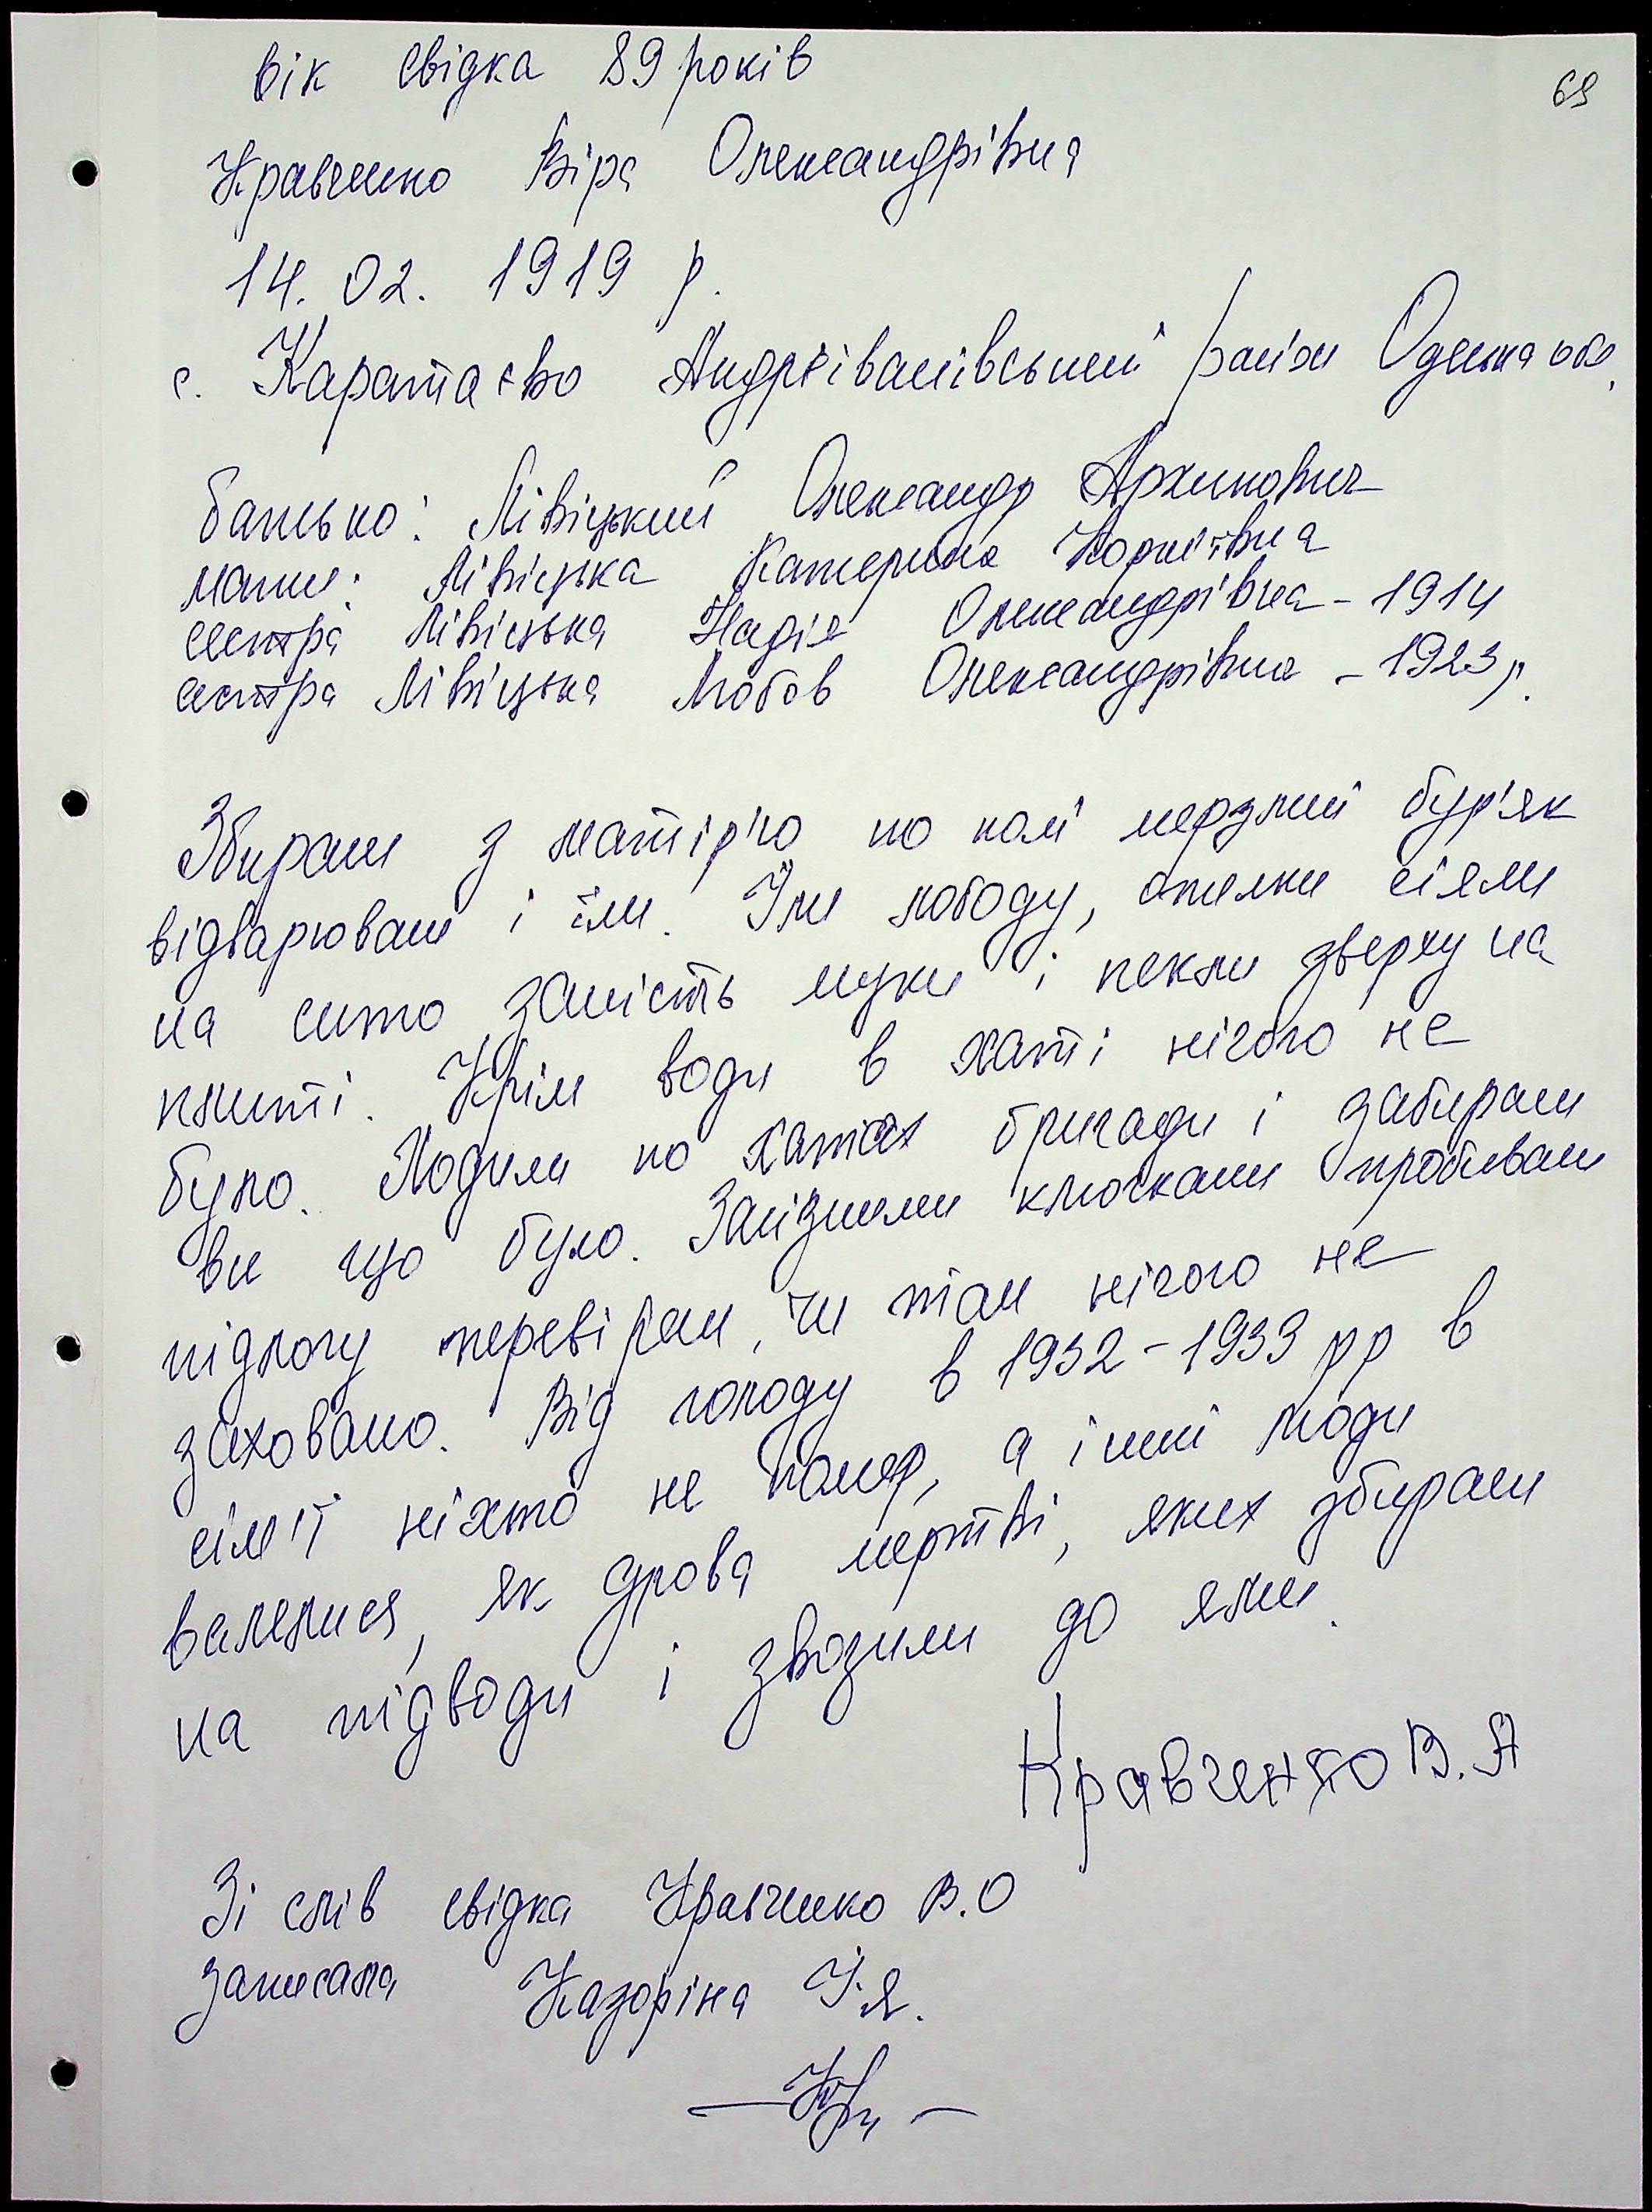 69
вік свідка 89 років
Кравченко Віра Олександрівна
14. 02. 1919 р.
с. Каратаєво Андрієіванівський район Одеська обл.
батько: Лівіцький Олександр Архипович
мати: Лівіцька Катерина Корніївна
сестра Лівіцька Надія Олександрівна - 1914
сестра Лівіцька Любов Олександрівна - 1923 р.
Збирали з матір'ю по полі мерзлий бур'як
відварювали і їли. Їли лободу, опилки сіяли
на сито замість муки і пекли зверху на
плиті. Крім води в хаті нічого не
було. Ходили по хатах бригади і забирали
ви що було. Залізними ключками пробивали
підлогу перевіряли, чи там нічого не
заховано. Від голоду в 1932-1933 рр в
сім'ї ніхто не помер, а інші люди
валялися, як дрова мертві, яких збирали
на підводи і звозили до ями.
Кравченко В. А
Зі слів свідка Кравченко В.О
записала Казоріна І.Я.